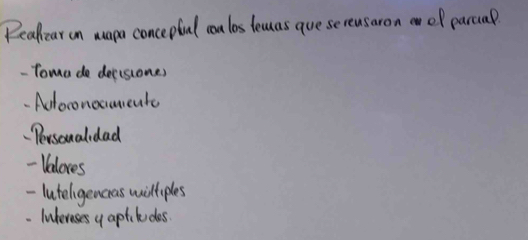 Realizar un mapa conceptual con los temas que se revisaron en el parcial
- Toma de decisiones
- Autoconocimiento
- Personalidad
- Valores
- Inteligencias múltiples
- Intereses y aptitudes.